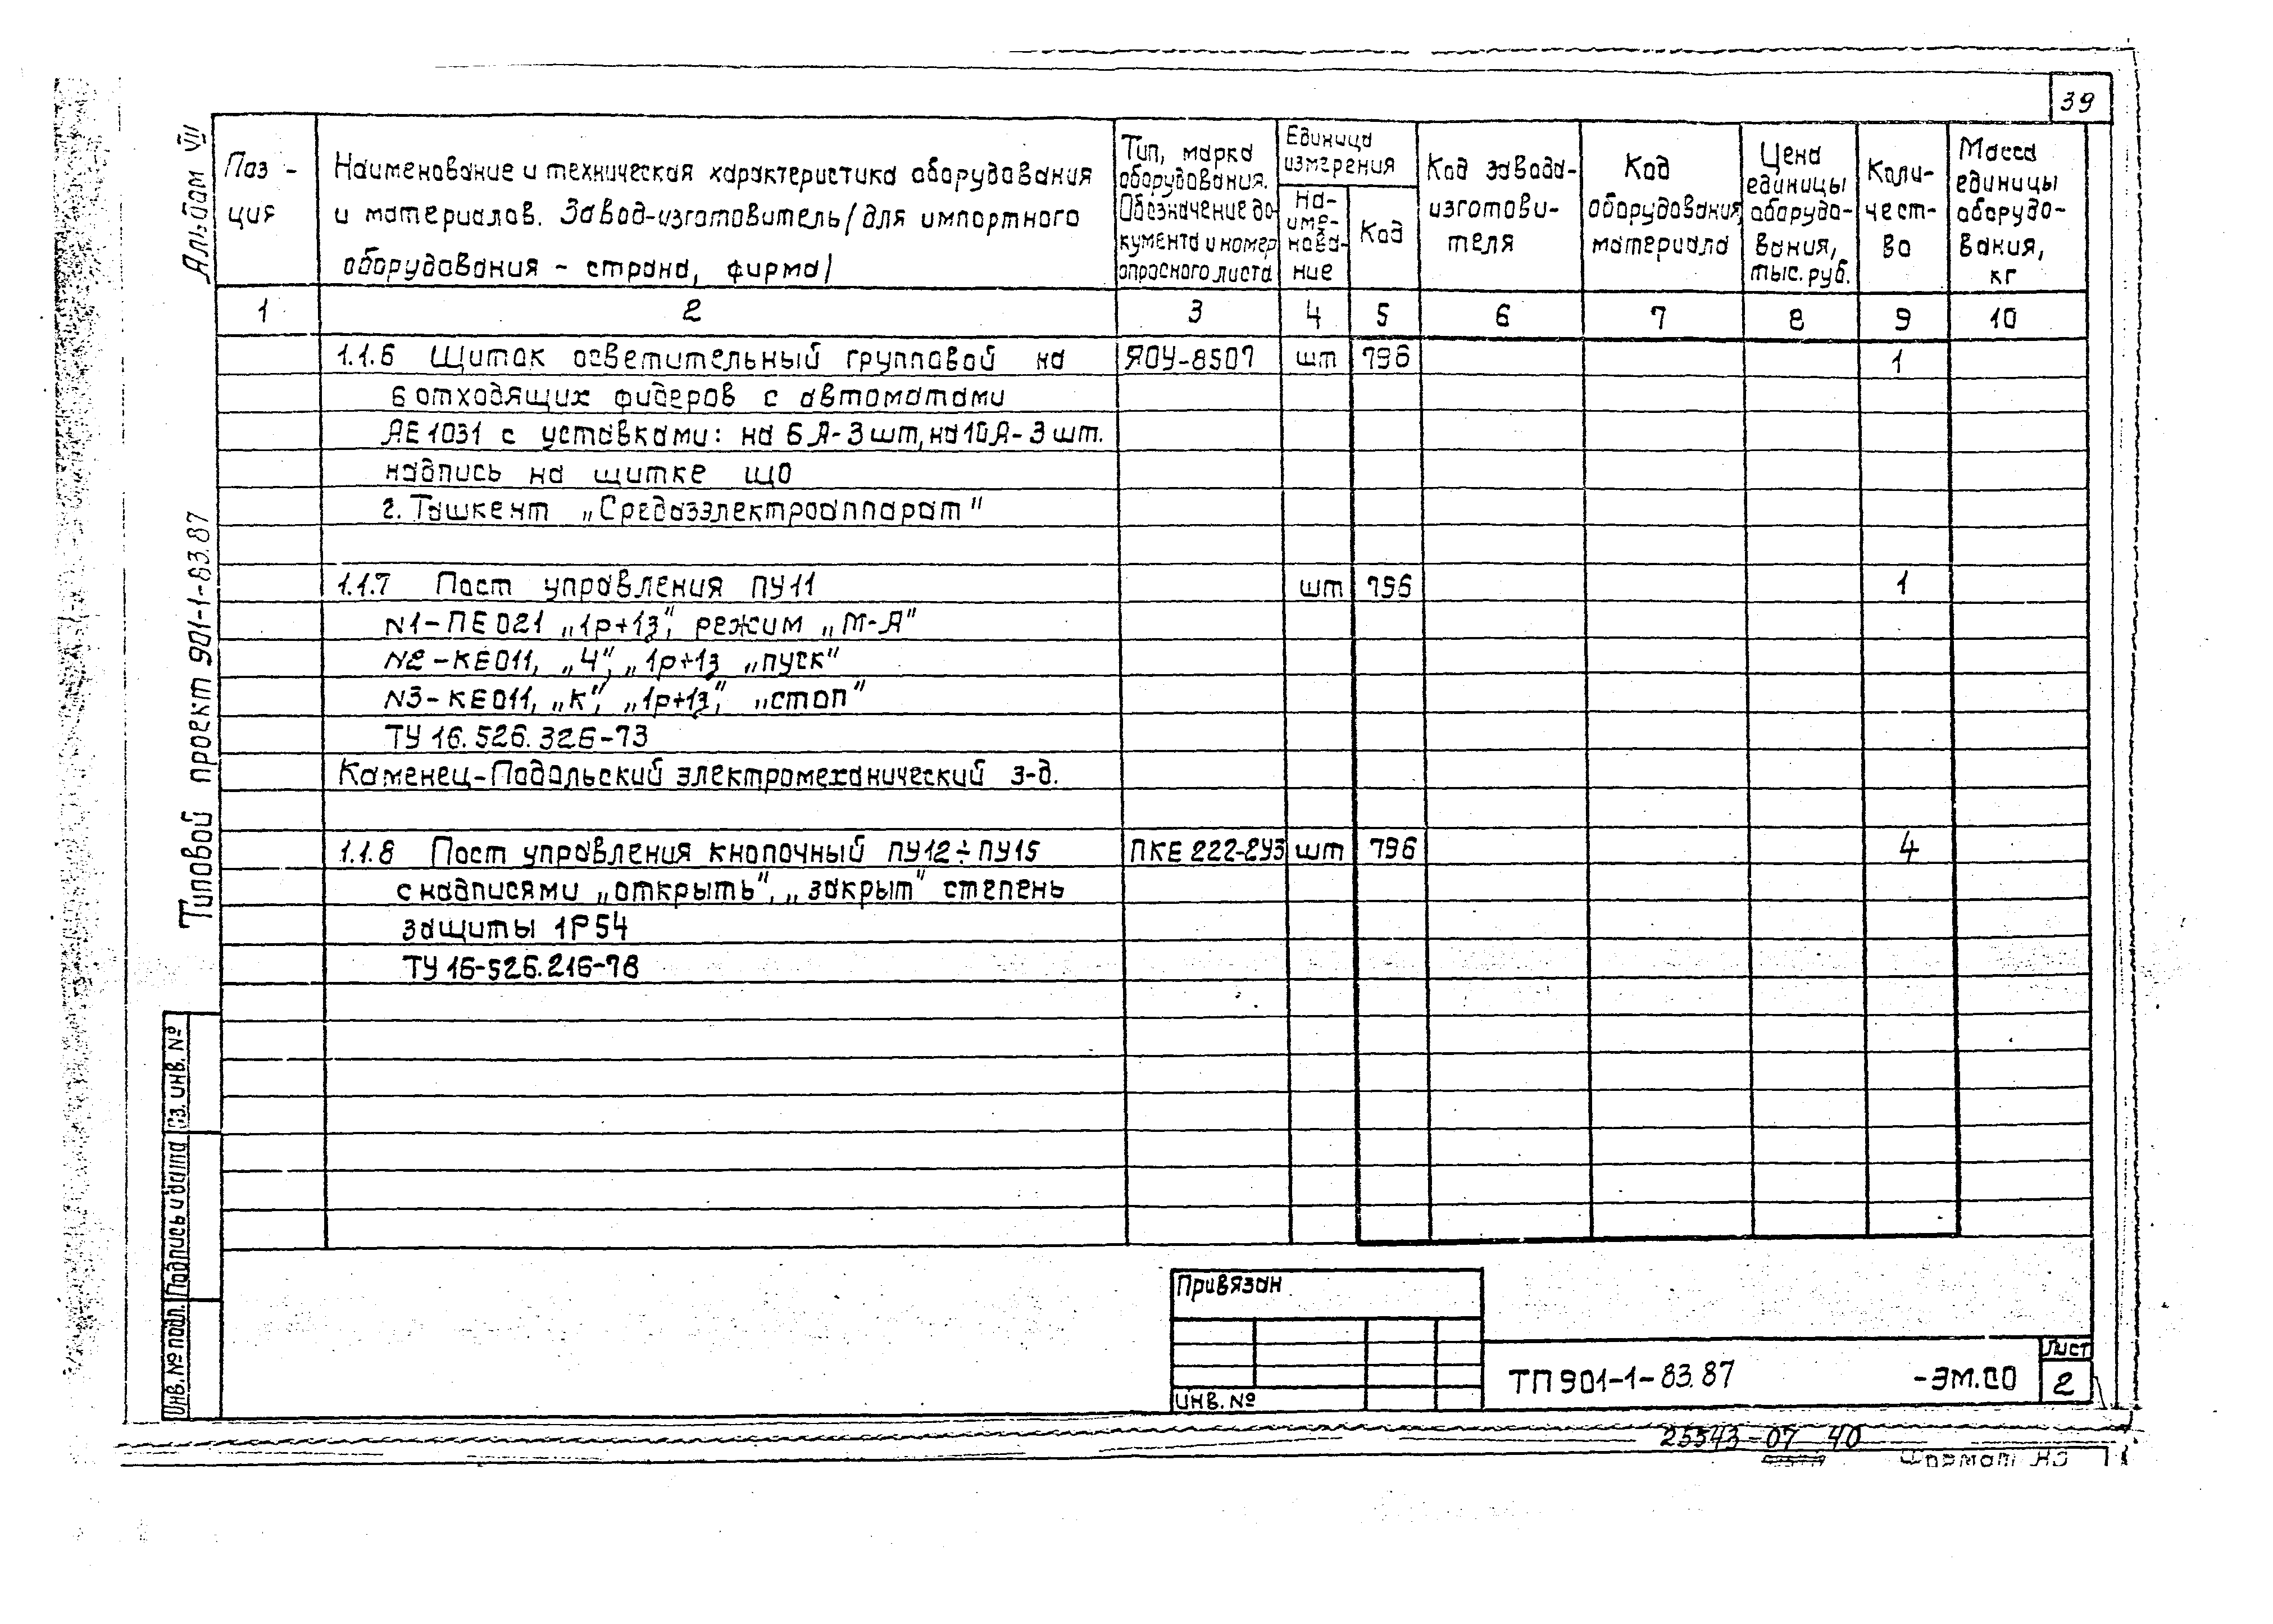 39
Альбом VII
Типовой проект 901-1-83.87
Поз-
ция
Наименование и техническая характеристика оборудования
и материалов. Завод-изготовитель/для импортного
оборудования - страна, фирма/
Тип, марка
оборудования.
Обозначение до-
кумента и номер
опросного листа
Единица
измерения
На-
име-
нова-
ние
Код
Код завода-
изготови-
теля
Код
оборудования,
материала
Цена
единицы
оборудо-
вания,
тыс. руб.
Коли-
чест-
во
Масса
единицы
оборудо-
вания,
кг
1 2 3 4 5 6 7 8 9 10
1.1.6 Щиток осветительный групповой на ЯОУ-8507 шт 796 1
6 отходящих фидеров с автоматами
АЕ1031 с уставками: на 6А-3шт, на 10А-3шт.
надпись на щитке ЩО
г. Ташкент „Средазэлектроаппарат"
1.1.7 Пост управления ПУ11 шт 796 1
N1-ПЕ021 „1р+1з", режим „М-А"
N2-КЕ011, „Ч", „1р+1з „пуск"
N3-КЕ011, „К", „1р+1з", „стоп"
ТУ 16.526.326-73
Каменец-Подольский электромеханический з-д.
1.1.8 Пост управления кнопочный ПУ12÷ПУ15 ПКЕ 222-2У3 шт 796 4
с надписями „открыть", „закрыт" степень
защиты 1Р54
ТУ 16-526.216-78
Вз. инв. №
Подпись и дата
Инв. № подл.
Привязан
Инв. №
ТП 901-1-83.87 -ЭМ.СО
Лист
2
25543-07 40
Формат А3